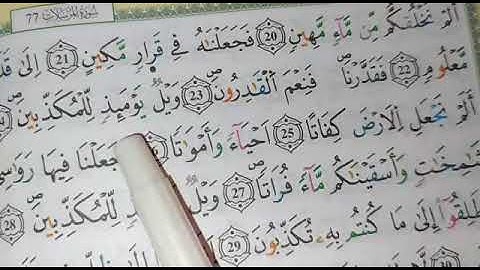 سُورَةُ الْمُرْسَلَاتِ 77
أَلَمْ نَخْلُقكُّم مِّن مَّآءٍ مَّهِينٍ 20 فَجَعَلْنَٰهُ فِى قَرَارٍ مَّكِينٍ 21 إِلَىٰ
مَّعْلُومٍ 22 فَقَدَرْنَا فَنِعْمَ الْقَٰدِرُونَ 23 وَيْلٌ يَوْمَئِذٍ لِّلْمُكَذِّبِينَ
أَلَمْ نَجْعَلِ الْأَرْضَ كِفَاتًا 25 أَحْيَآءً وَأَمْوَٰتًا جَعَلْنَا فِيهَا
شَٰمِخَٰتٍ وَأَسْقَيْنَٰكُم مَّآءً فُرَاتًا 27 وَيْلٌ لِّلْمُكَذِّبِينَ 28
إِلَىٰ مَا كُنتُم بِهِۦ تُكَذِّبُونَ 29